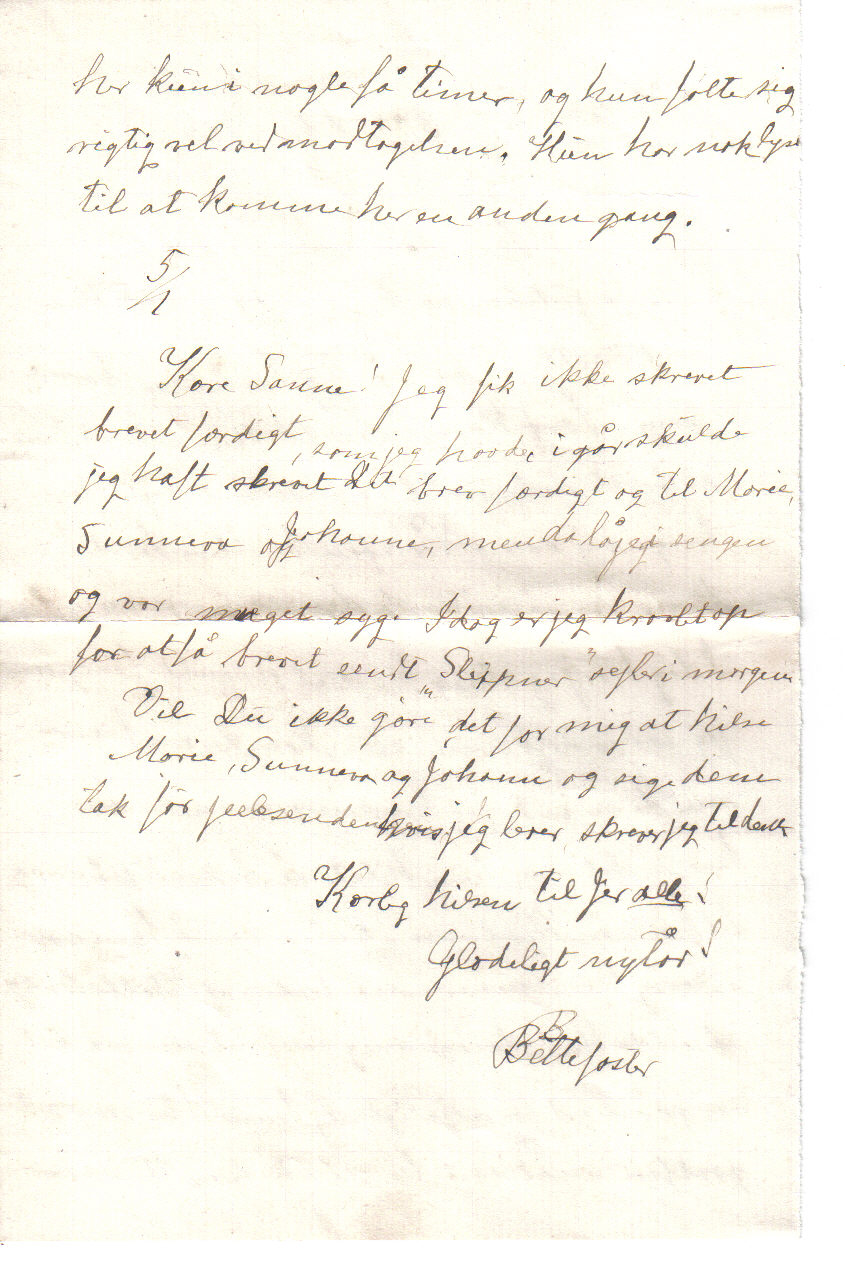 her kun i nogle få timer, og hun følte sig
rigtig vel ved modtagelsen. Hun har nok lyst
til at komme her en anden gang.
5/1
Kære Sanne! Jeg fik ikke skrevet
brevet færdigt, som jeg havde, i går skulde
jeg haft skrevet Dit brev færdigt og til Marie,
Sunneva og Johanne, men da lå jeg i sengen
og var meget syg. Idag er jeg kravlet op
for at få brevet sendt "Sleipner" sejler i morgen
Vil Du ikke gøre det for mig at hilse
Marie, Sunneva og Johann og sige dem
tak for julesenden hvis jeg lever, skrever jeg til dem
Kærlig hilsen til Jer alle!
Glædeligt nytår!
Bettefaster